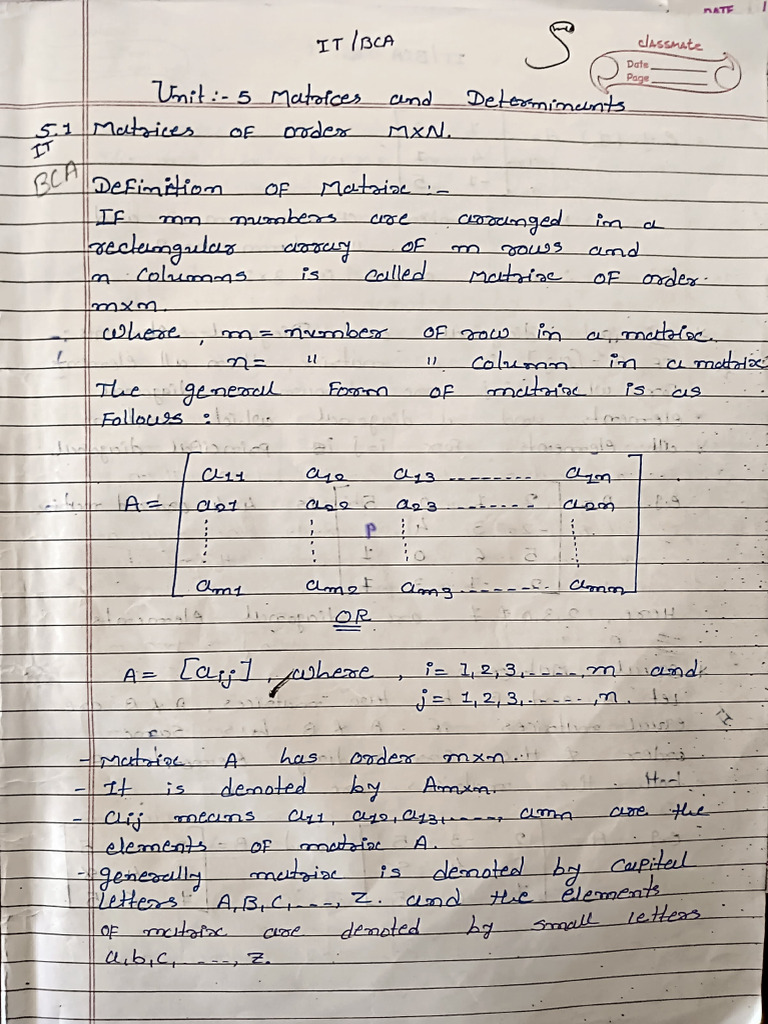 DATE
IT/BCA
classmate
Date
Page
Unit:- 5 Matrices and Determinants
5.1 Matrices of order MXN.
IT
BCA
Definition of Matrix :-
If mn numbers are arranged in a
rectangular array of m rows and
n columns is called matrix of order
mxn.
where, m = number of row in a matrix.
n = " " column in a matrix
The general form of matrix is as
follows :
a11 a12 a13 -------- a1n
A = a21 a22 a23 ------- a2n
am1 am2 am3 ------- amn
OR
A = [aij], where, i = 1,2,3,-----,m and
j = 1,2,3,-----,n.
- Matrix A has order mxn.
- It is denoted by Amxn.
- aij means a11, a12, a13,-----, amn are the
elements of matrix A.
- generally matrix is denoted by capital
letters A,B,C,---, Z. and the elements
of matrix are denoted by small letters
a,b,c, ----, z.